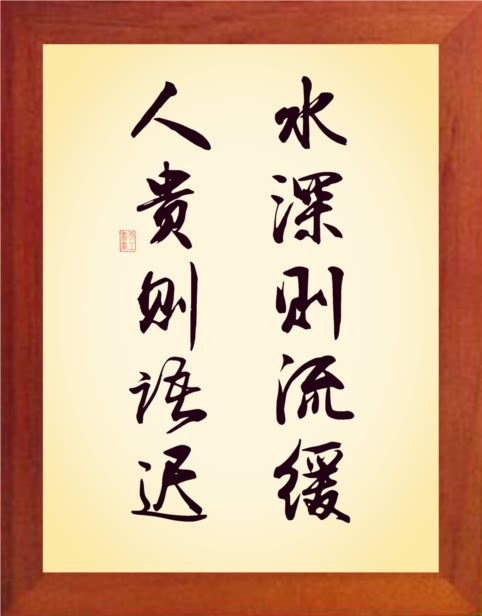 水深则流缓
人贵则语迟